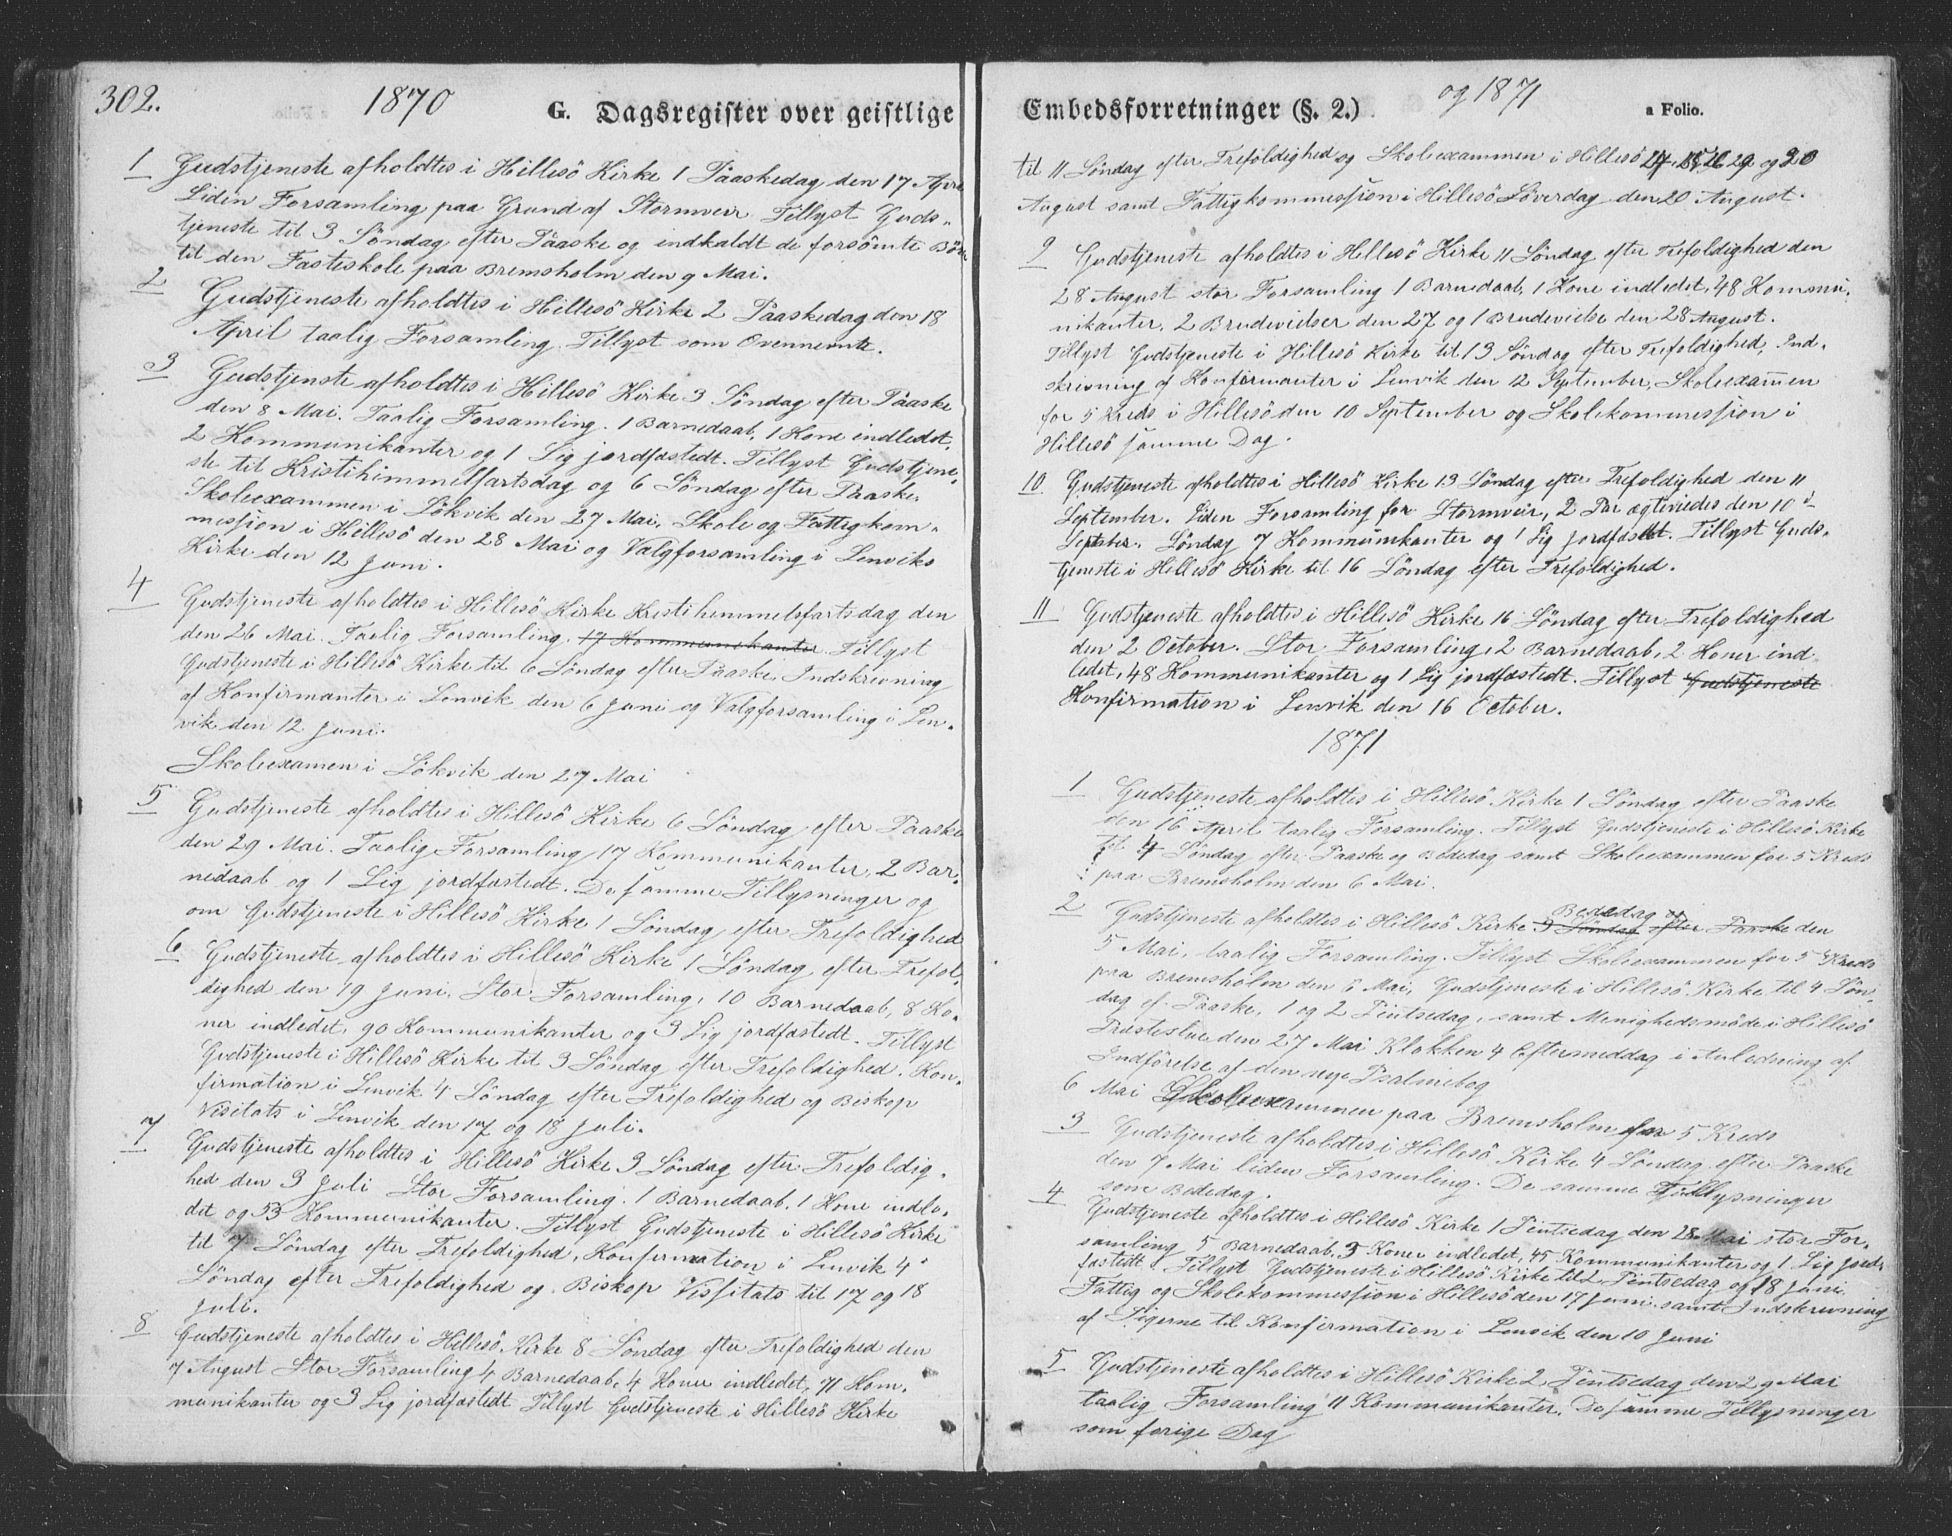 302. 1870 G. Dagsregister over geistlige
1 Gudstjeneste afholdtes i Hillesö Kirke 1 Paaskedag den 17 Apri
Liden Forsamling paa Grund af Stormveir Tillyst Guds-
tjeneste til 3 Söndag efter Paaske og indkaldt de forsömte Börn
til den Fasteskole paa Bremsholm den 9 Mai.
2 Gudstjeneste afholdtes i Hillesö Kirke 2 Paaskedag den 18
April taalig Forsamling. Tillyst som Ovennemte.
3 Gudstjenste afholdtes i Hillesö Kirke 3 Söndag efter Paaske
den 8 Mai. Taalig Forsamling. 1 Barnedaab, 1 Kone indledet,
2 Kommunikanter og 1 Lig jordfæstedt. Tillyst Gudstjene-
ste til Kristihimmelfartsdag og 6 Söndag efter Paaske.
Skoleexammen i Lökvik den 27 Mai, Skole og Fattigkom-
messjon i Hillesö den 28 Mai og Valgforsamling i Lenviks
Kirke den 12 Juni.
4 Gudstjeneste afholdtes i Hillesö Kirke Kristihimmelsfartsdag den
den 26 Mai. Taalig Forsamling. 17 Kommunikanter Tillyst
Gudstjeneste i Hillesö Kirke til 6 Söndag efter Paaske, Indskrivning
af Konfirmanter i Lenvik den 6 Juni og Valgforsamling i Len-
vik den 12 Juni.
Skoleexamen i Lökvik den 27 Mai
5 Gudstjeneste afholdtes i Hillesö Kirke 6 Söndag efter Paaske
den 29 Mai. Taalig Forsamling 17 Kommunikanter, 2 Bar-
nedaab og 1 Lig jordfæstedt. De samme Tillysninger og
om Gudstjeneste i Hillesö Kirke 1 Söndag efter Trefoldighed
6 Gudstjeneste afholdtes i Hillesö Kirke 1 Söndag efter Trefol-
dighed den 19 Juni. Stor Forsamling, 10 Barnedaab, 8 Ko-
ner indledet, 90 Kommunikanter og 3 Lig jordfæstedt. Tillyst
Gudstjeneste i Hillesö Kirke til 3 Söndag efter Trefoldighed. Kon-
firmation i Lenvik 4 Söndag efter Trefoldighed og Biskop
Visitats i Lenvik den 17 og 18 Juli.
7 Gudstjeneste afholdtes i Hillesö Kirke 3 Söndag efter Trefoldig-
hed den 3 Juli Stor Forsamling. 1 Barnedaab. 1 Kone indle-
det og 53 Kommunikanter. Tillyst Gudstjeneste i Hillesö Kirke
til 7 Söndag efter Trefoldighed, Konfermation i Lenvik 4
Söndag efter Trefoldighed og Biskop Vissitats til 17 og 18
Juli.
8 Gudstjeneste afholdtes i Hillesö Kirke 8 Söndag efter Trefoldighed den
7 August Stor Forsamling 4 Barnedaab, 4 Koner indledet, 71 Kom-
munikanter og 3 Lig jordfæstedt Tillyst Gudstjeneste i Hillesö Kirke
Embedsforretninger (§. 2.) og 1871 a Folio.
til 11 Söndag efter Trefoldighed og Skoleexammen i Hillesö 29 og 20
August samt Fattigkommessjon i Hillesö Löverdag den 20 August.
9 Gudstjeneste afholdtes i Hillesö Kirke 11 Söndag efter Trefoldighed den
28 August stor Forsamling 1 Barnedaab, 1 Kone indledet, 48 Kommu-
nikanter, 2 Brudevidser den 27 og 1 Brudevielse den 28 August.
Tillyst Gudstjeneste i Hillesö Kirke til 13 Söndag efter Trefoldighed, Ind-
skrivning af Konfirmanter i Lenvik den 12 September, Skoleexammen
for 5 Kreds i Hillesö den 10 September og Skolekommessjon i
Hillesö samme Dag.
10 Gudstjeneste afholdtes i Hillesö Kirke 13 Söndag efter Trefoldighed den 11
September. Liden Forsamling for Stormveir, 2 Par ægteviedes den 10
September. Söndag 7 Kommunikanter og 1 Lig jordfæstedt. Tillyst Guds-
tjeneste i Hillesö Kirke til 16 Söndag efter Trefoldighed.
11 Gudstjeneste afholdtes i Hillesö Kirke 16 Söndag efter Trefoldighed
den 2 October. Stor Forsamling, 2 Barnedaab, 2 Koner ind-
ledet, 48 Kommunikanter og 1 Lig jordfæstedt. Tillyst Gudstjeneste
Konfirmation i Lenvik den 16 October.
1871
1 Gudstjeneste afholdtes i Hillesö Kirke 1 Söndag efter Paaske
den 16 April taalig Forsamling. Tillyst Gudstjeneste i Hillesö Kirke
til 4 Söndag efter Paaske og Bededag samt Skoleexammen for 5 Kreds
paa Bremsholm den 6 Mai.
2 Gudstjeneste afholdtes i Hillesö Kirke 3 Söndag efter Paaske Bededag den
5 Mai, taalig Forsamling. Tillyst Skoleexammen for 5 Kreds
paa Bremsholm den 6 Mai, Gudstjeneste i Hillesö Kirke til 4 Sön-
dag ef. Paaske, 1 og 2 Pintsedag, samt Menighedsmöde i Hillesö
Præstestue den 27 Mai Klokken 4 Eftermeddag i Anledning af
Indförelse af den nye Psalmebog
6 Mai Skoleexammen paa Bremsholm for 5 Kreds
3 Gudstjeneste afholdtes i Hillesö Kirke 4 Söndag efter Paaske
den 7 Mai liden Forsamling. De samme Tillysninger
som Bededag.
4 Gudstjeneste afholdtes i Hillesö Kirke 1 Pintsedag den 28 Mai stor For-
samling 5 Barnedaab, 3 Koner indledet, 45 Kommunikanter og 1 Lig jord-
fæstedt. Tillyst Gudstjeneste i Hillesö Kirke til 2 Pintsedag og 18 Juni.
Fattig og Skolekommessjon i Hillesö den 17 Juni samt Indskrivning
af Pigerne til Konfirmation i Lenvik den 10 Juni
5 Gudstjeneste afholdtes i Hillesö Kirke 2 Pintsedag den 29 Mai
taalig Forsamling 11 Kommunikanter. De samme Tillysninger
som forige Dag